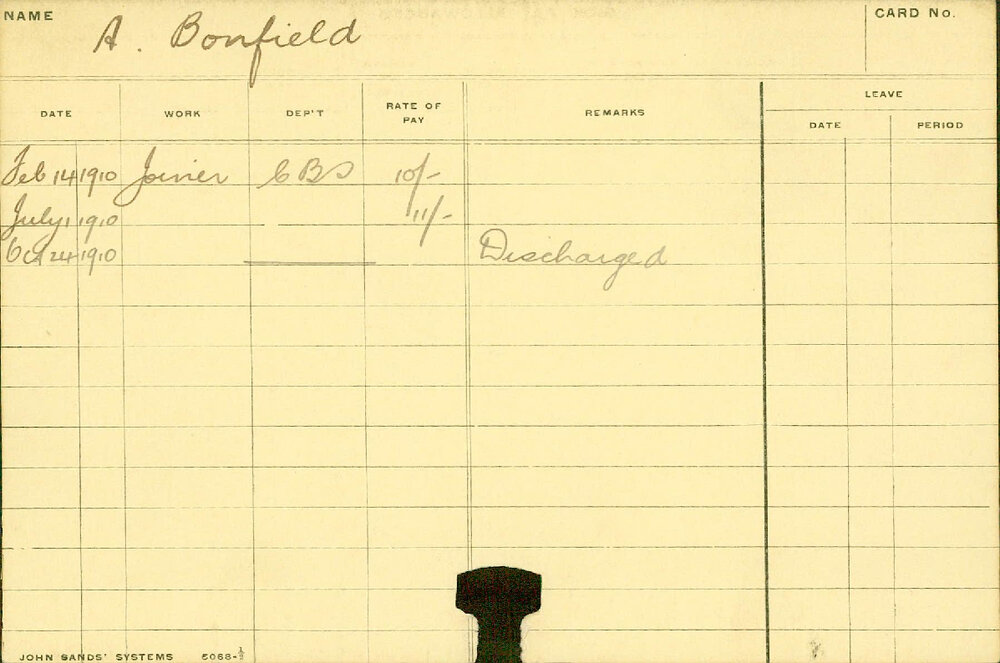 NAME A. Bonfield CARD No.
LEAVE
DATE WORK DEP'T RATE OF PAY REMARKS DATE PERIOD
Feb 14 1910 Joiner CBS 10/-
July 1 1910 11/-
Oct 24 1910 Discharged
JOHN SANDS' SYSTEMS 5068-